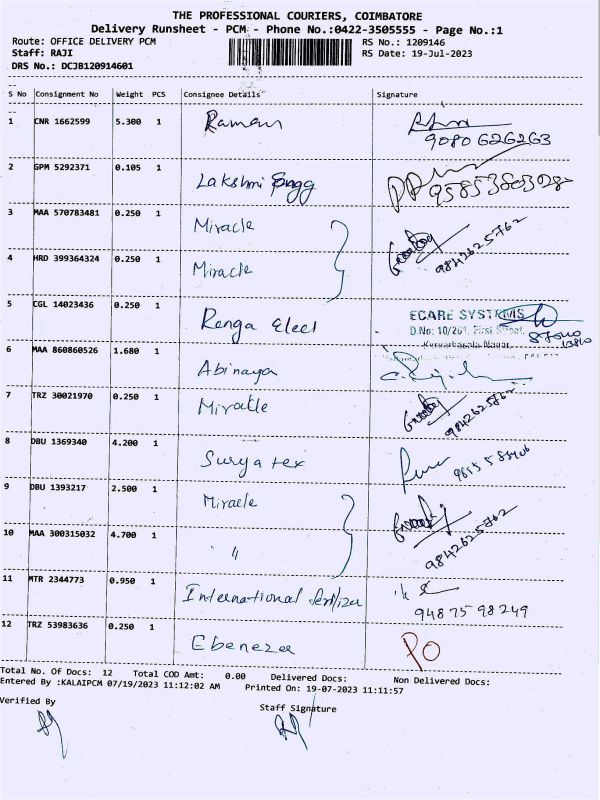 THE PROFESSIONAL COURIERS, COIMBATORE
Delivery Runsheet - PCM - Phone No.:0422-3505555 - Page No.:1
Route: OFFICE DELIVERY PCM RS No.: 1209146
Staff: RAJI RS Date: 19-Jul-2023
DRS No.: DCJB120914601
S No Consignment No Weight PCS Consignee Details Signature
1 CNR 1662599 5.300 1 Raman
9080626263
2 GPM 5292371 0.105 1 Lakshmi Engg
9585380308
3 MAA 570783481 0.250 1 Miracle
9842625762
4 HRD 399364324 0.250 1 Miracle
5 CGL 14023436 0.250 1 Renga Elect ECARE SYSTEMS
D.No: 10/261, First Street,
6 MAA 860860526 1.680 1 Abinaya
7 TRZ 30021970 0.250 1 Miracle
9842625762
8 DBU 1369340 4.200 1 Surya tex
9 DBU 1393217 2.500 1 Miracle
10 MAA 300315032 4.700 1 "
9842625762
11 MTR 2344773 0.950 1 International fertilizer
9487598249
12 TRZ 53983636 0.250 1 Ebenezer PO
Total No. Of Docs: 12 Total COD Amt: 0.00 Delivered Docs: Non Delivered Docs:
Entered By :KALAIPCM 07/19/2023 11:12:02 AM Printed On: 19-07-2023 11:11:57
Verified By Staff Signature